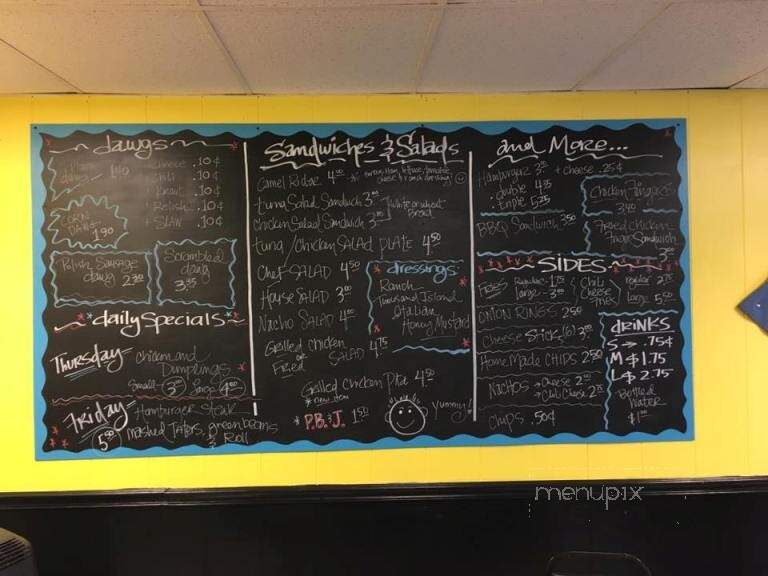 dawgs
Plain
dawg 1.40
+ cheese .10¢
+ chili .10¢
+ kraut .10¢
+ Relish .10¢
+ SLAW .10¢
CORN
DAWG 1.90
Polish Sausage
dawg
Scrambled
dawg
3.35
daily Specials
Thursday
Chicken and
Dumplings
Small 3.00 Large 4.00
Friday
5.50
Hamburger Steak
Mashed Taters, green beans
& Roll
Sandwiches & Salads
Camel Rider 4.00
Tuna Salad Sandwich
Chicken Salad Sandwich
white or wheat
Bread
Tuna / Chicken SALAD PLATE 4.50
Chef SALAD 4.50
House SALAD 3.00
Nacho SALAD 4.00
Grilled Chicken
or SALAD 4.75
Fried
dressings
Ranch
Thousand Island
Italian
Honey Mustard
Grilled Chicken Pita 4.50
* new item
* P.B. & J. 1.50
yummy!
and More...
Hamburger
+ cheese .25¢
double
triple 5.25
BBQ Sandwich 3.50
Chicken Fingers
3.40
Fried Chicken
Finger Sandwich
SIDES
FRIES Regular 1.75
Large
Chili
Cheese
Fries
regular 2.75
Large 5.50
ONION RINGS 2.50
Cheese Sticks (6) 3.00
Home Made CHIPS 2.50
NACHOS → Cheese 2.00
→ Chili Cheese
Chips .50¢
drinks
S → .75¢
M → $1.75
L → $2.75
Bottled
Water
$1.00
menupix